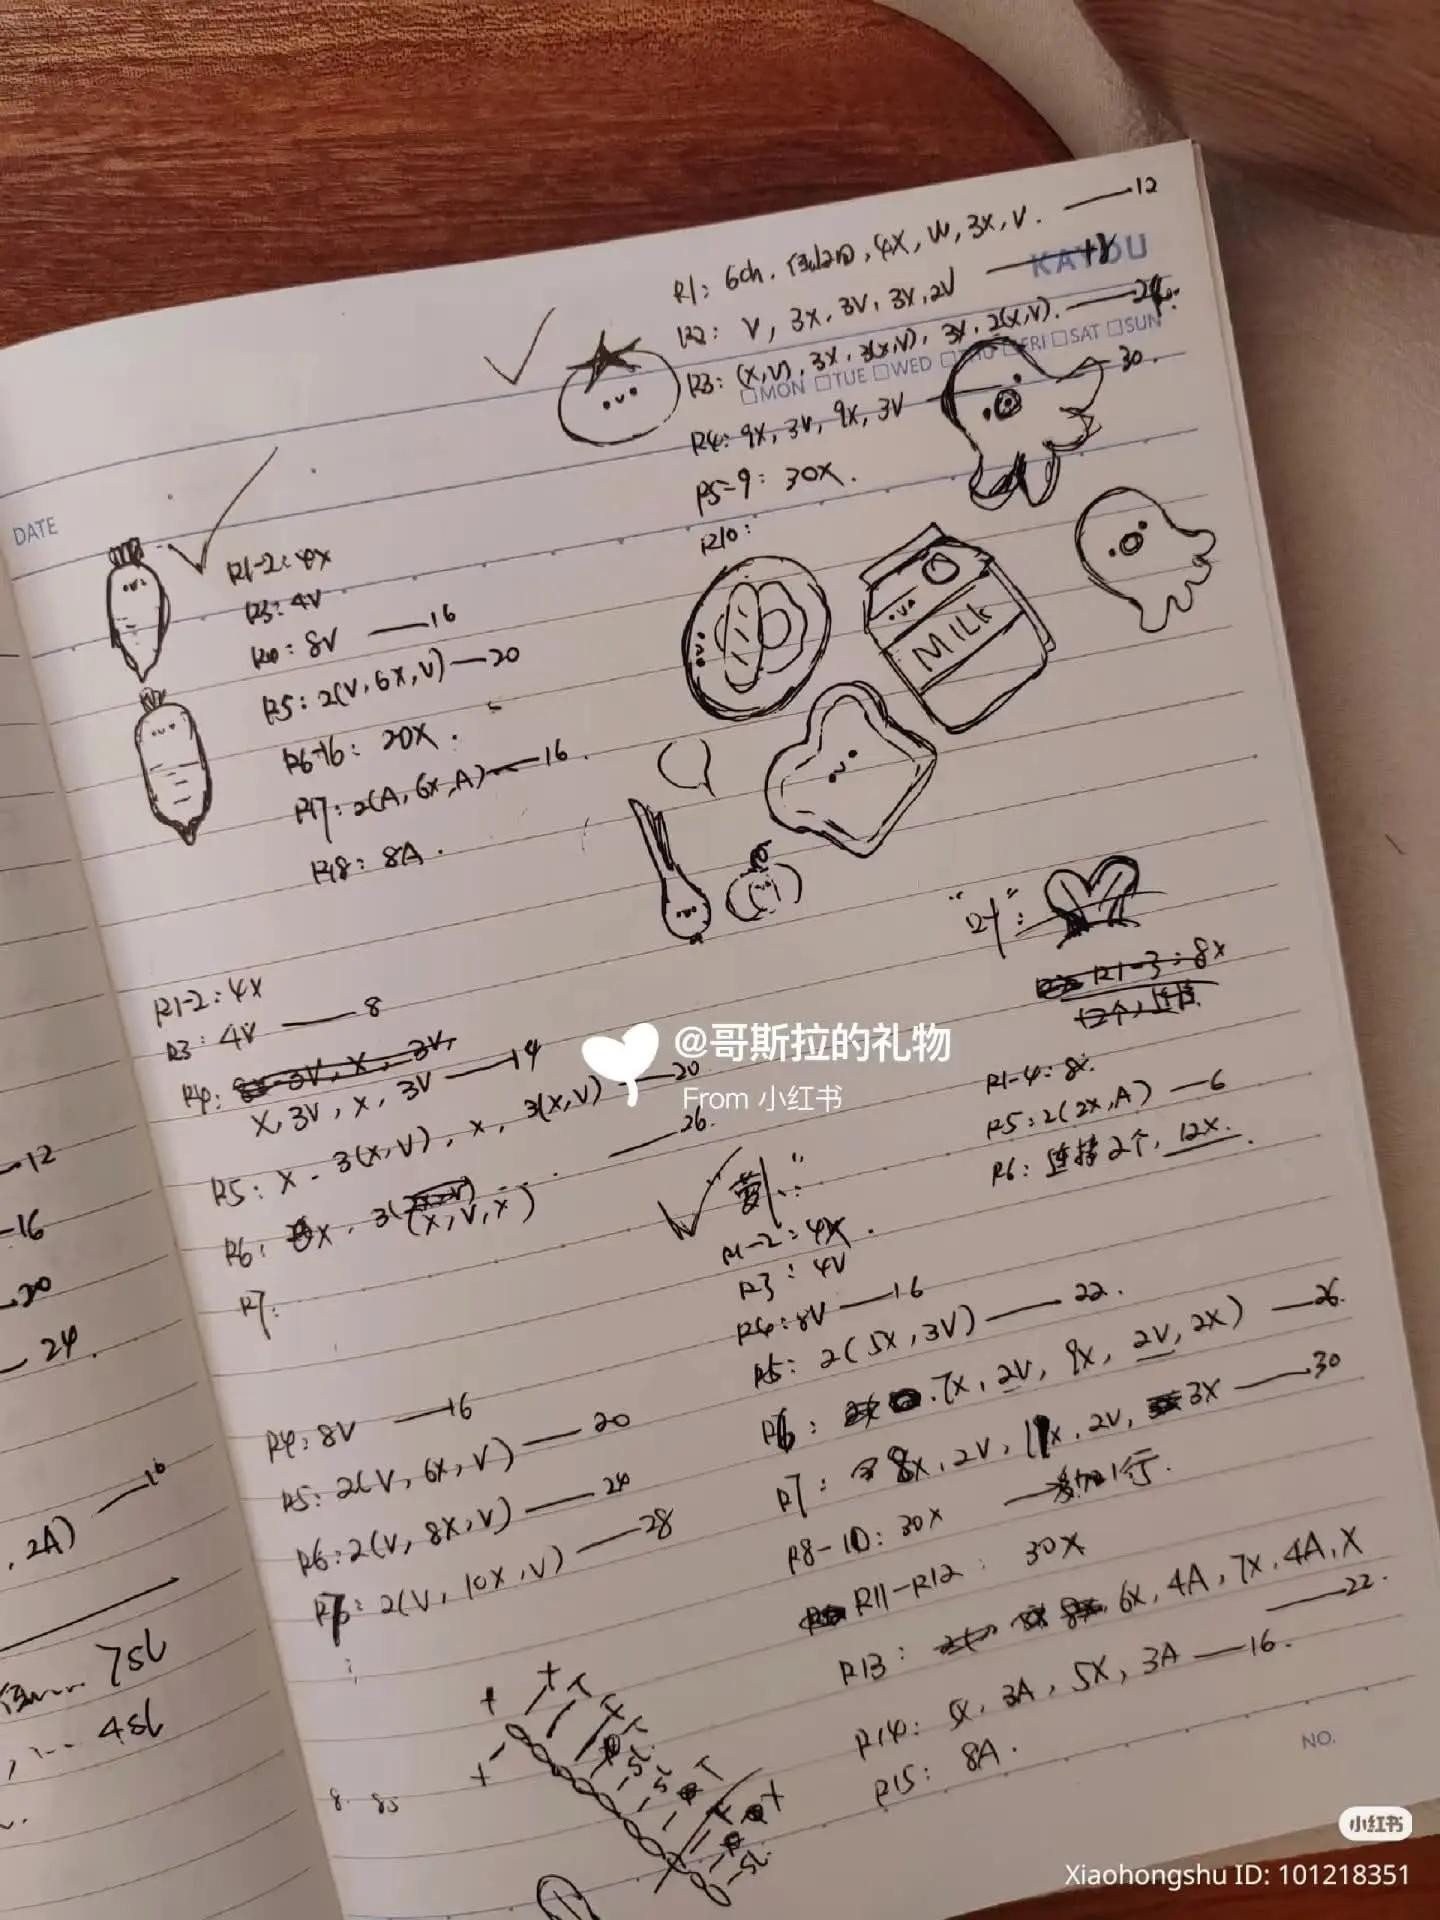 R1: 6ch. 4X, W, 3X, V. —12
KAYOU
R2: V, 3X, 3V, 3X, 2V —18
R3: (X,V), 3X, 3(X,V), 3X, 2(X,V). —24
□MON □TUE □WED □THU □FRI □SAT □SUN
R4: 9X, 3V, 9X, 3V —30.
R5-9: 30X.
R10:
MILK
DATE
R1-2: 4X
R3: 4V
R4: 8V —16
R5: 2(V, 6X, V) —20
R6-16: 20X.
R17: 2(A, 6X, A) —16.
R18: 8A.
"叶":
R1-3: 8X
R1-4: 8X.
R5: 2(2X, A) —6
R6: 连接2个, 12X.
R1-2: 4X
R3: 4V —8
R4: 8X 3V, X, 3V,
X, 3V, X, 3V —14
R5: X. 3(X,V), X, 3(X,V) —20
R6: X. 3(X,V,X) —26.
R7:
@哥斯拉的礼物
From 小红书
R1-2: 4X.
R3: 4V
R4: 8V —16
R5: 2(5X, 3V) —22.
R6: 7X, 2V, 9X, 2V, 2X) —26.
R7: 8X, 2V, 11X, 2V, 3X —30
R8-10: 30X —多加1行.
R11-R12: 30X
R13: 6X, 4A, 7X, 4A, X —22.
R14: X, 3A, 5X, 3A —16.
R15: 8A.
R4: 8V —16
R5: 2(V, 6X, V) —20
R6: 2(V, 8X, V) —24
R7: 2(V, 10X, V) —28
—12
—16
—20
—24.
, 2A) —16
7SL
4SL
NO.
小红书
Xiaohongshu ID: 101218351